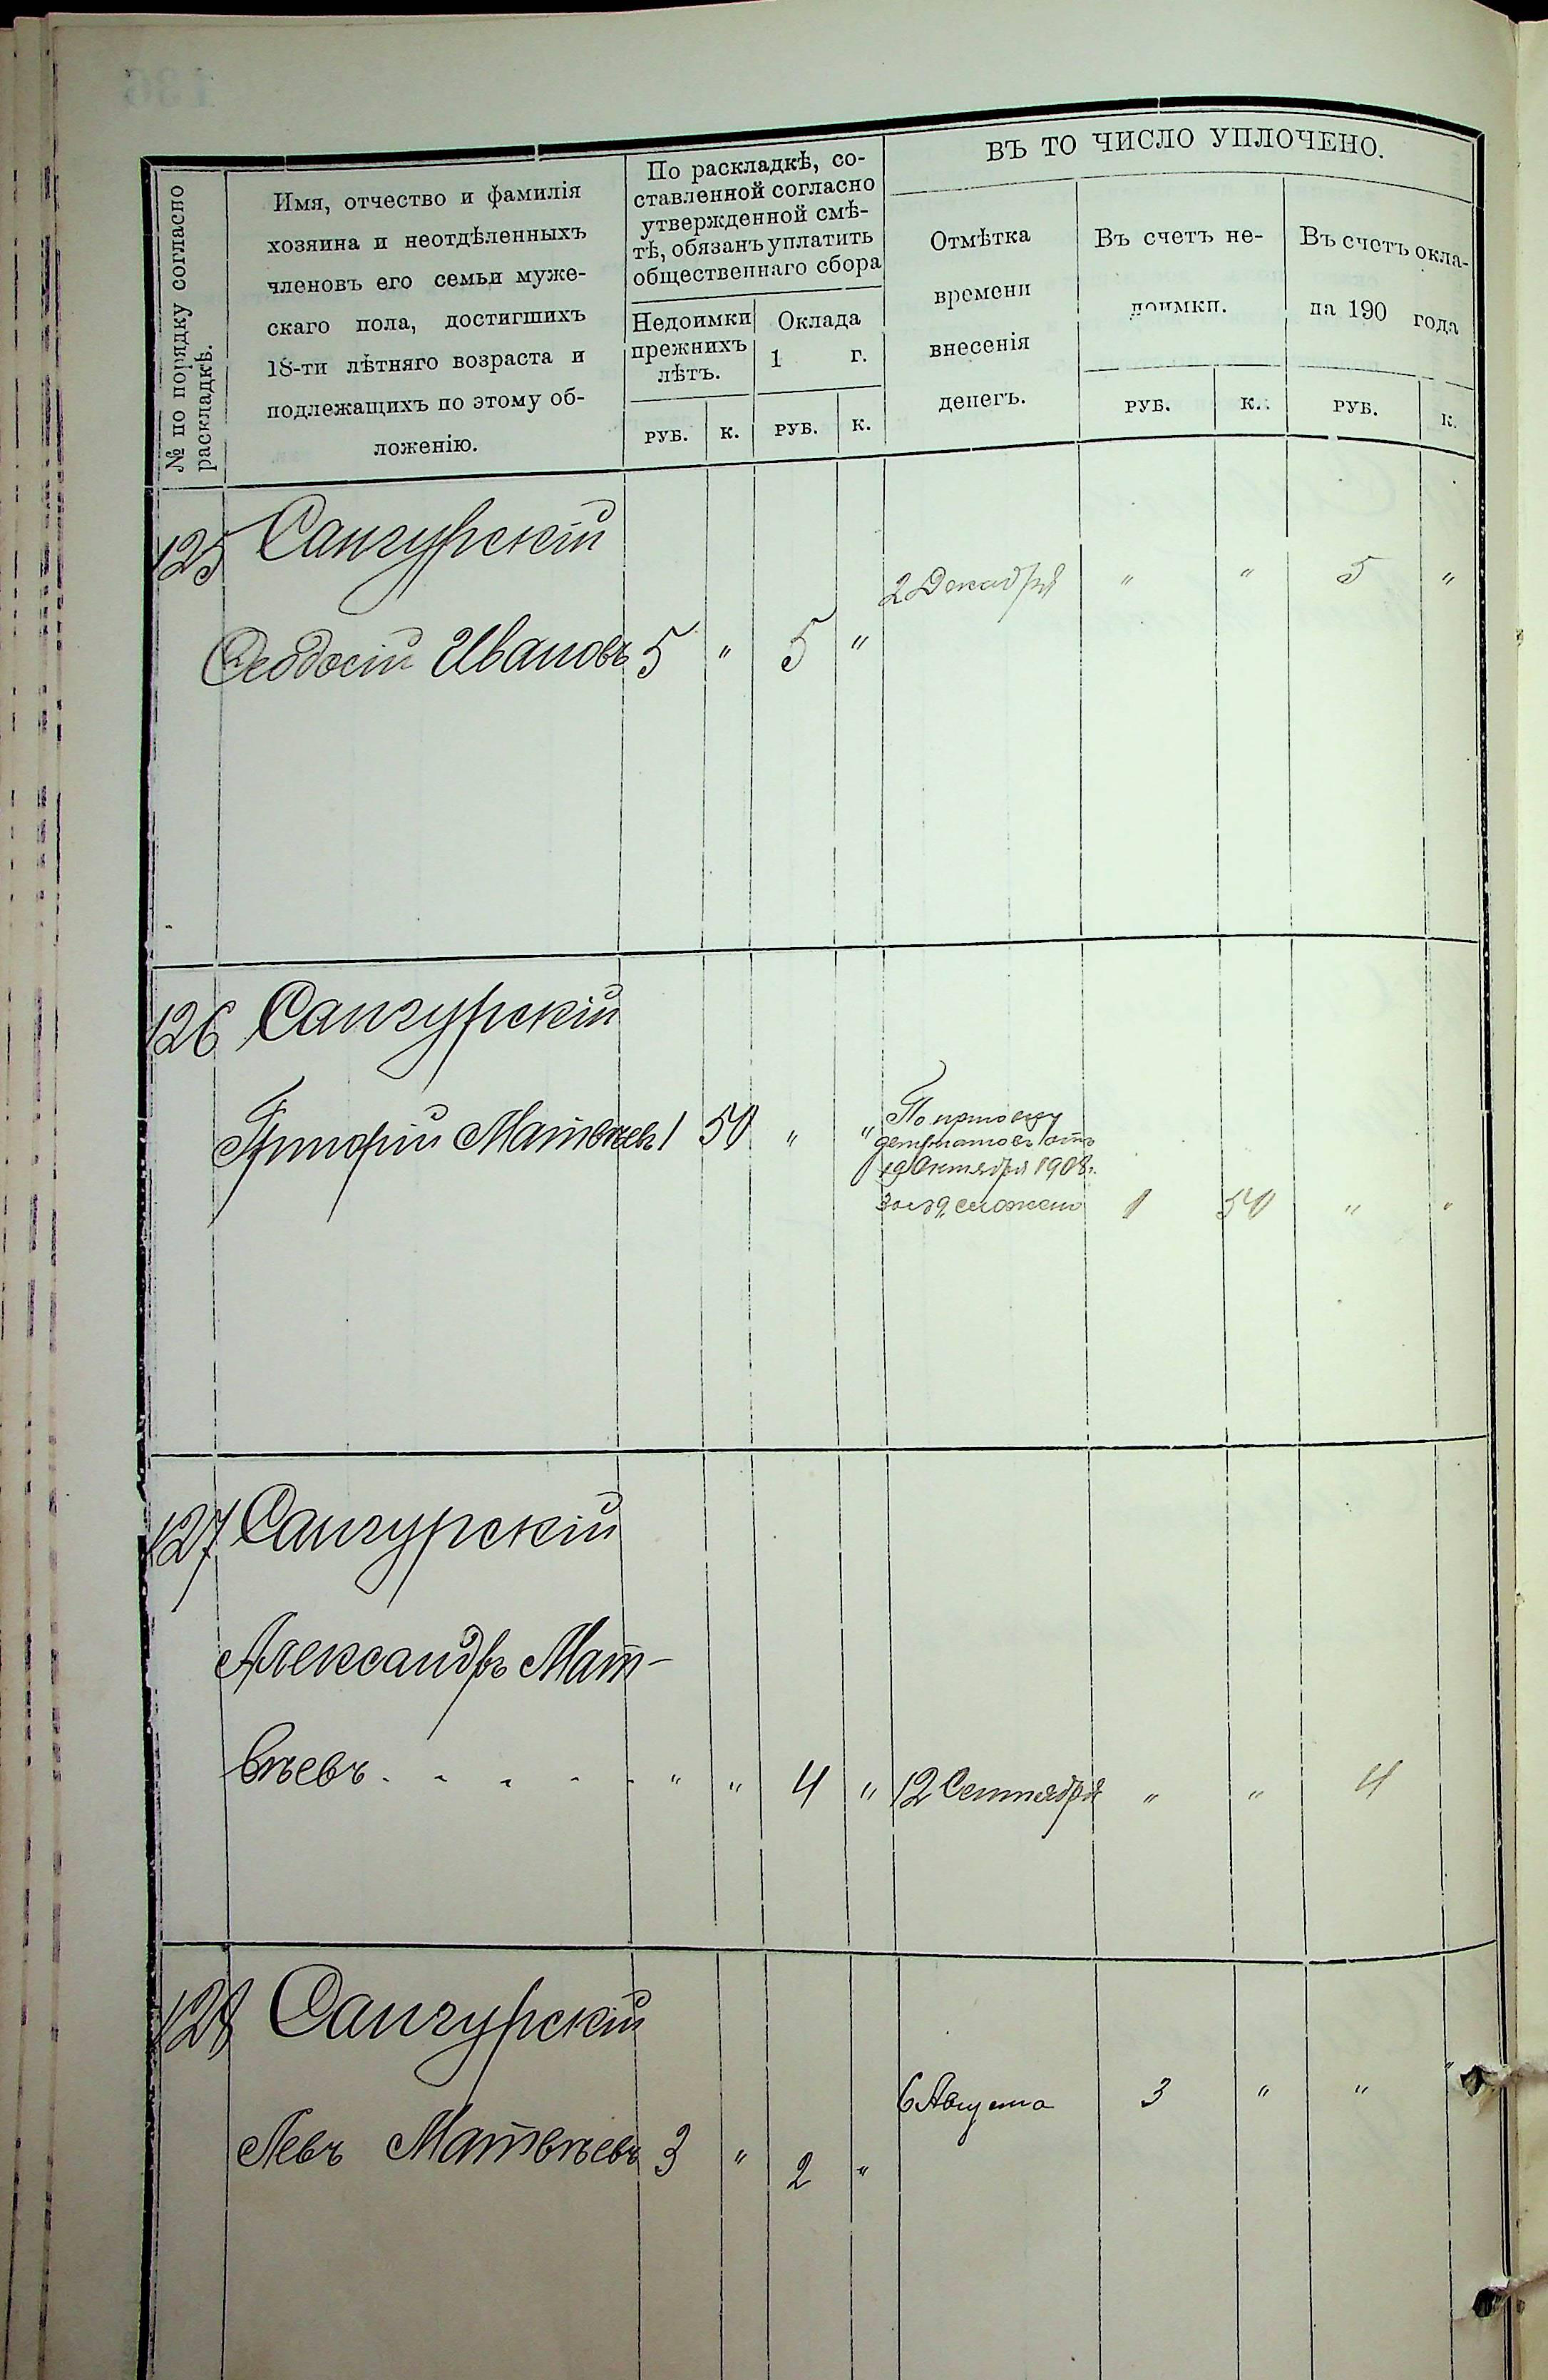 ВЪ ТО ЧИСЛО УПЛОЧЕНО.
№ по порядку согласно
раскладкѣ.
Имя, отчество и фамилія
хозяина и неотдѣленныхъ
членовъ его семьи муже-
скаго пола, достигшихъ
18-ти лѣтняго возраста и
подлежащихъ по этому об-
ложенію.
По раскладкѣ, со-
ставленной согласно
утвержденной смѣ-
тѣ, обязанъ уплатить
общественнаго сбора
Недоимки
прежнихъ
лѣтъ.
Оклада
1 г.
Отмѣтка
времени
внесенія
денегъ.
Въ счетъ не-
доимки.
Въ счетъ окла-
да 190 года
РУБ. К. РУБ. К. РУБ. К. РУБ. К.
125 Сангурскій
2 Декабря " " 5 "
Ѳеодосій Ивановъ 5 " 5 "
126 Сангурскій
Григорій Матвѣевъ 1 50 " "
По
депутатовъ отъ
19 Октября 1908 г.
сложено 1 50 " "
127 Сангурскій
Александръ Мат-
вѣевъ - - - - - " " 4 " 12 Сентября " " 4
128 Сангурскій
6 Августа 3 " " "
Левъ Матвѣевъ 3 " 2 "